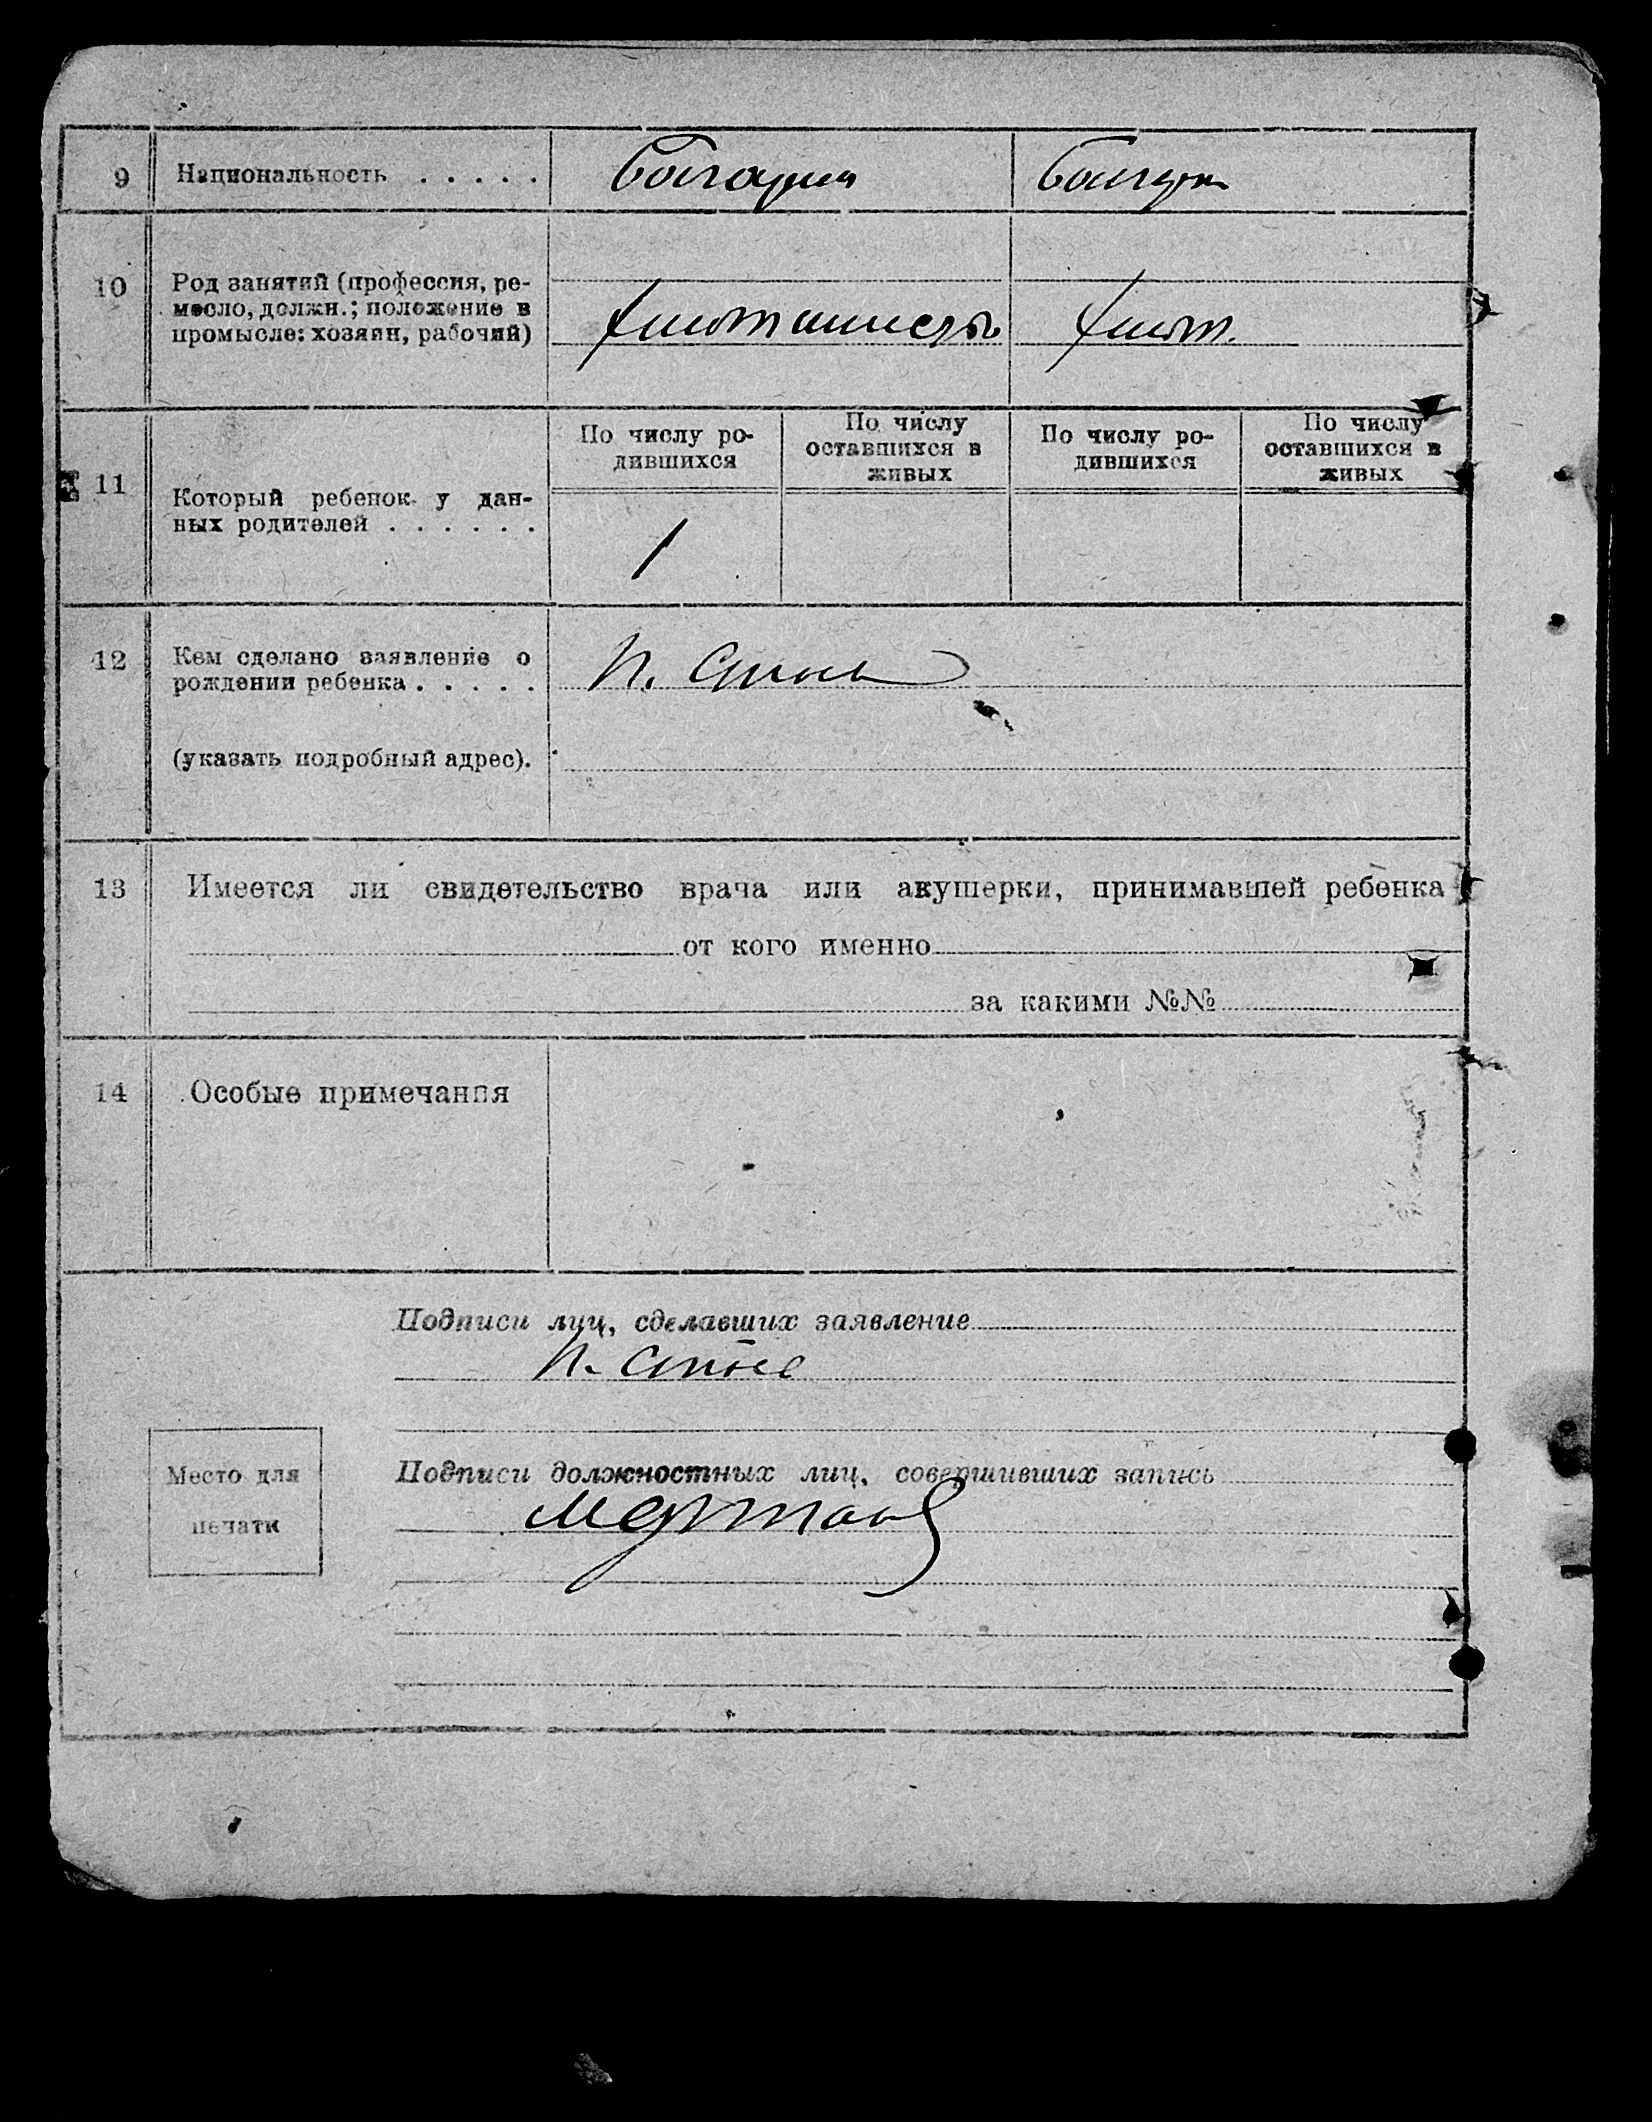 9 Национальность . . . . . болгарин болгарк
10 Род занятий (профессия, ре-
месло, должн.; положение в
промысле: хозяин, рабочий)
По числу ро-
дившихся
По числу
оставшихся в
живых
По числу ро-
дившихся
По числу
оставшихся в
живых
11 Который ребенок у дан-
ных родителей . . . . . . 1
12 Кем сделано заявление о
рождении ребенка . . . . .
(указать подробный адрес).
13 Имеется ли свидетельство врача или акушерки, принимавшей ребенка
от кого именно
за какими №№
14 Особые примечания
Подписи лиц, сделавших заявление
Место для
печати
Подписи должностных лиц, совершивших запись